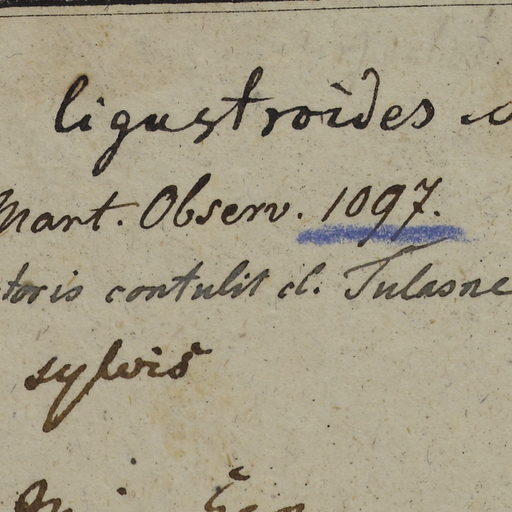 ligustroides
Mart. Observ. 1097.
toris contulit cl. Tulasne
sylvis